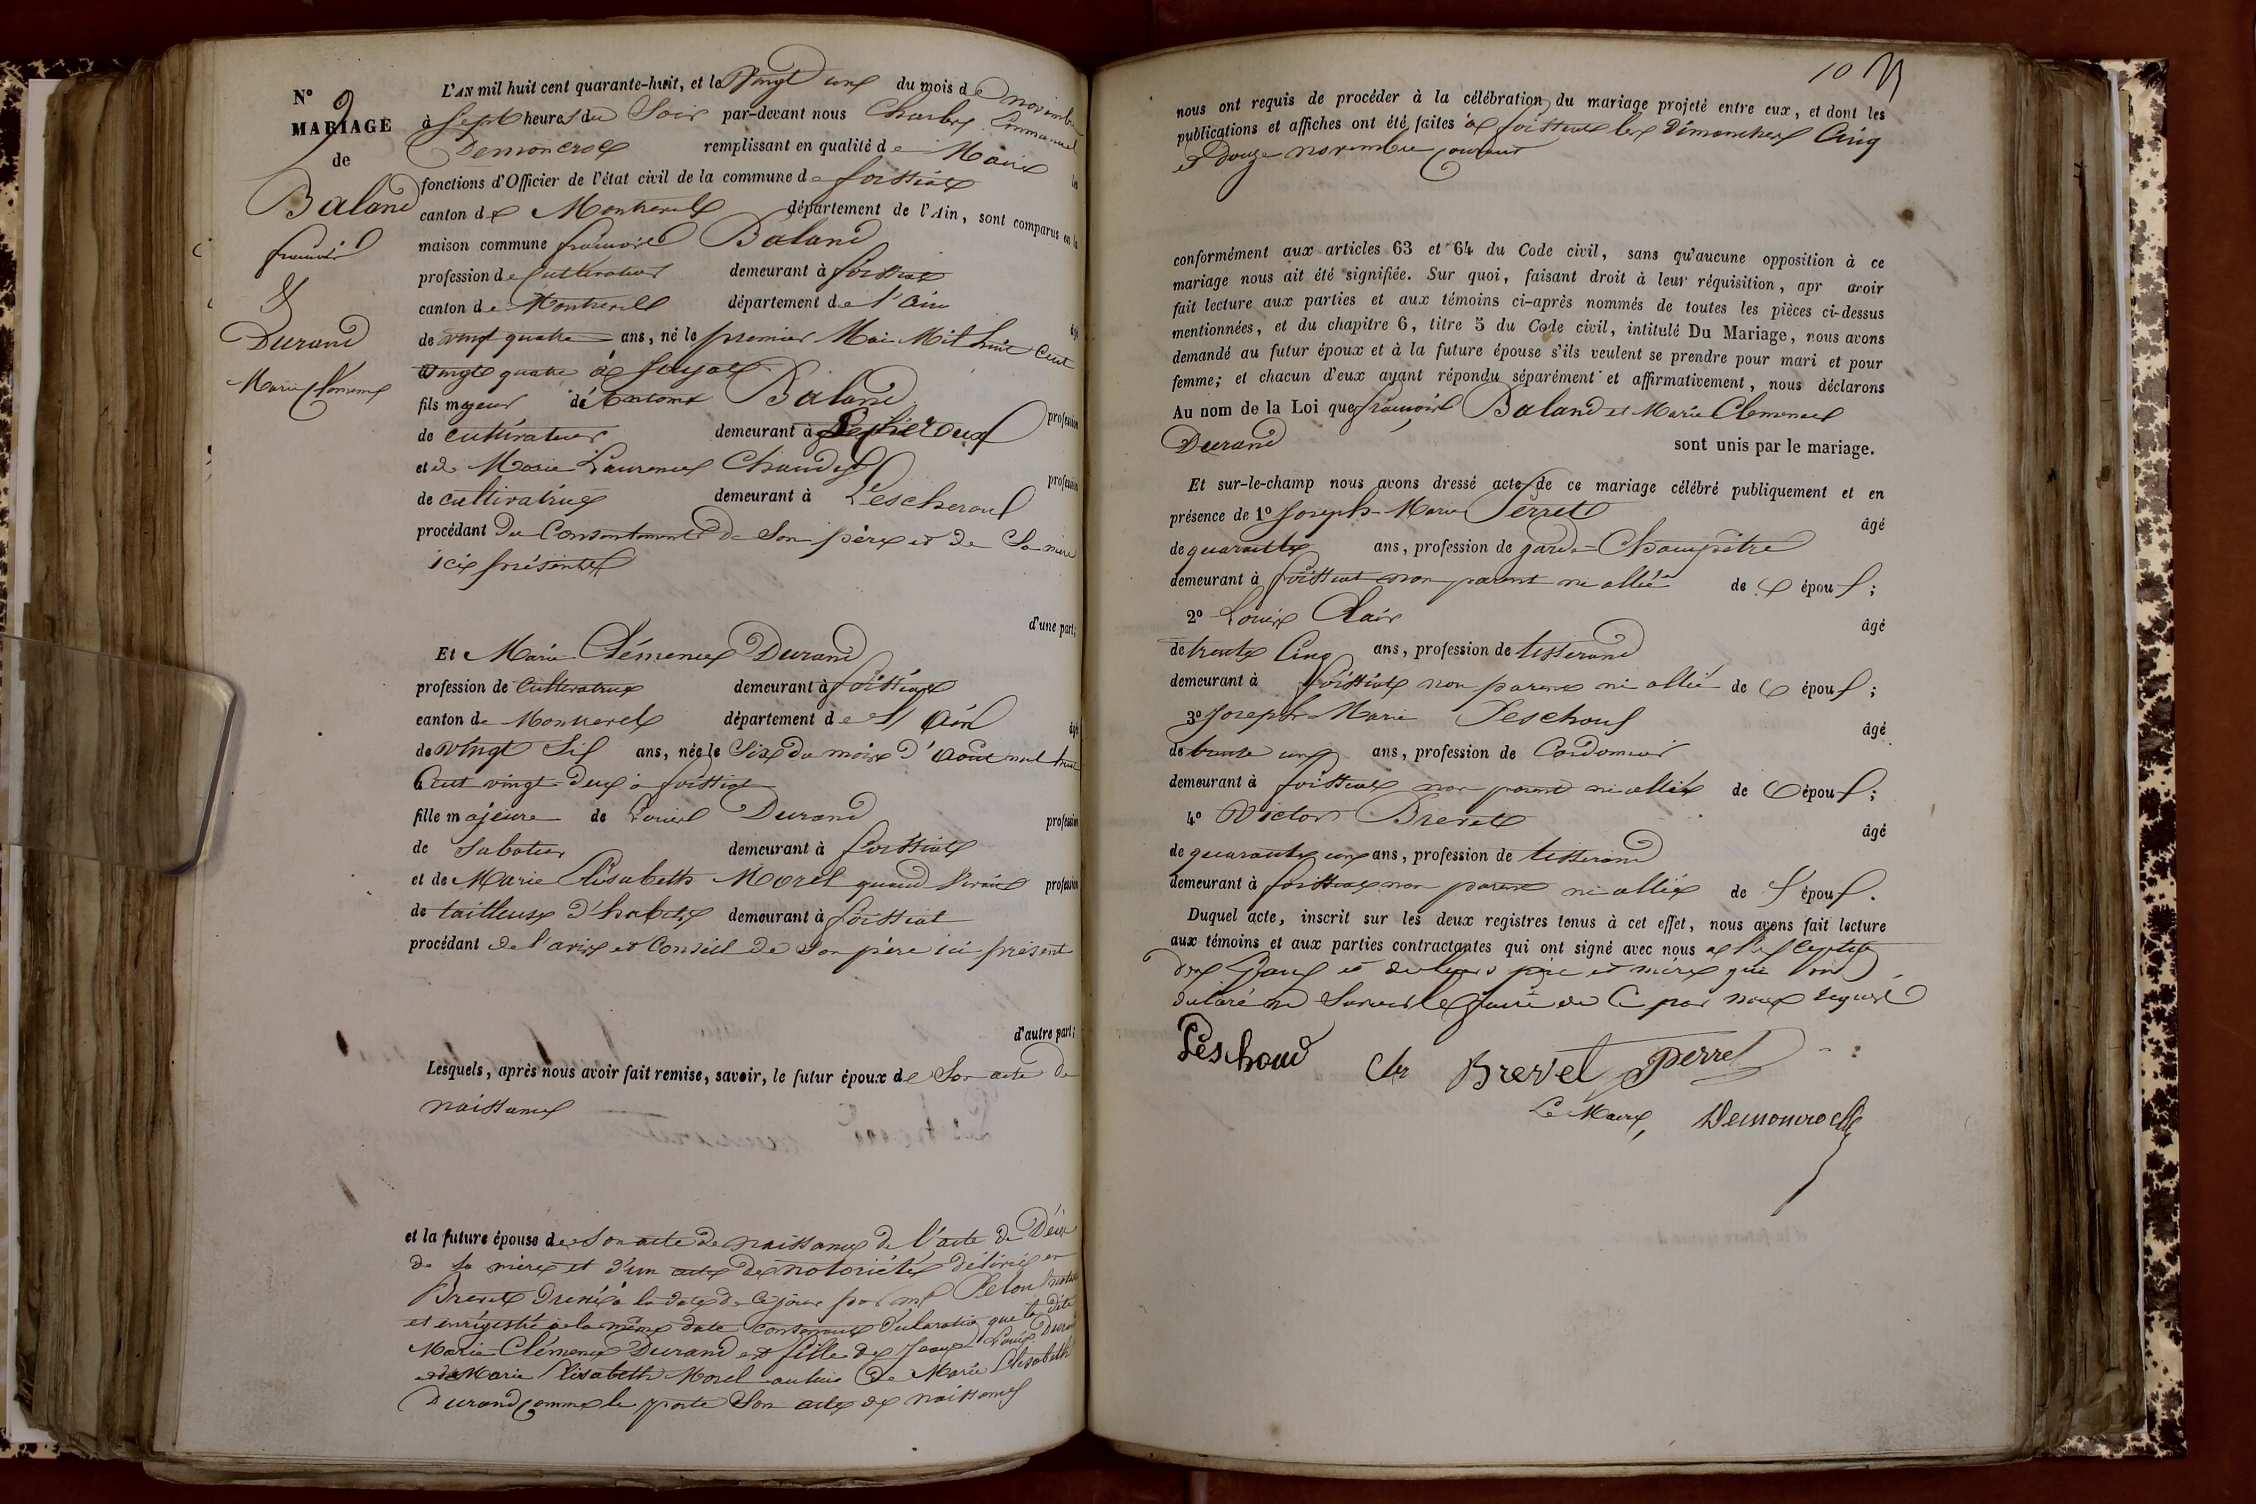 N° 9
MARIAGE
de
Baland
françois
&
Durand
Marie Clémence
L'AN mil huit cent quarante-huit, et le Vingt un du mois de novembre
à Sept heures du Soir par-devant nous Charles Emmanuel
remplissant en qualité de Maire les
fonctions d'Officier de l'état civil de la commune de foissiat
canton de Montrevel département de l'Ain, sont comparus en la
maison commune françois Baland
profession de cultivateur demeurant à foissiat
canton de Montrevel département de l'Ain âgé
de vingt quatre ans, né le premier Mai Mil huit Cent
Vingt quatre à
fils majeur de Baland profession
de cultivateur demeurant à
et de Marie Laurence profession
de cultivatrice demeurant à Lescheroux
procédant du Consentement de Son père et de Sa mère
ici présents
d'une part;
Et Marie Clémence Durand
profession de Cultivatrice demeurant à foissiat
canton de Montrevel département de l'Ain âgé
de vingt Six ans, née le Six du mois d'Août mil huit
Cent vingt-deux à foissiat
fille majeure de Louis Durand profession
de Sabotier demeurant à foissiat
et de Marie Elisabeth Morel quand vivait profession
de tailleuse d'habits demeurant à foissiat
procédant de l'avis et Conseil de Son père ici présent
d'autre part;
Lesquels, après nous avoir fait remise, savoir, le futur époux de Son acte de
naissance
et la future épouse de Son acte de naissance de l'acte de Décès
de Sa mère et d'un acte de notoriété délivré en
Brevet dressé à la date de ce jour par
et enregistré à la même date contenant déclaration que la dite
Marie Clémence Durand est fille de Louis Durand
et de Marie Elisabeth Morel au lieu de Marie Elisabeth
Durand comme le porte Son acte de naissance
10
nous ont requis de procéder à la célébration du mariage projeté entre eux, et dont les
publications et affiches ont été faites à foissiat les Dimanches Cinq
et Douze novembre courant
conformément aux articles 63 et 64 du Code civil, sans qu'aucune opposition à ce
mariage nous ait été signifiée. Sur quoi, faisant droit à leur réquisition, apr avoir
fait lecture aux parties et aux témoins ci-après nommés de toutes les pièces ci-dessus
mentionnées, et du chapitre 6, titre 5 du Code civil, intitulé Du Mariage, nous avons
demandé au futur époux et à la future épouse s'ils veulent se prendre pour mari et pour
femme; et chacun d'eux ayant répondu séparément et affirmativement, nous déclarons
Au nom de la Loi que françois Baland et Marie Clemence
Durand sont unis par le mariage.
Et sur-le-champ nous avons dressé acte de ce mariage célébré publiquement et en
présence de 1° Joseph-Marie Perret âgé
de quarante ans, profession de garde-Champêtre
demeurant à foissiat non parent ni allié des épous;
2° Louis Clair âgé
de trente Cinq ans, profession de tisserand
demeurant à foissiat non parent ni allié des épous;
3° Joseph-Marie Peschoud âgé
de trente un ans, profession de Cordonnier
demeurant à foissiat non parent ni allié des épous;
4° Victor Brevet âgé
de quarante un ans, profession de tisserand
demeurant à foissiat non parent ni allié des épous.
Duquel acte, inscrit sur les deux registres tenus à cet effet, nous avons fait lecture
aux témoins et aux parties contractantes qui ont signé avec nous à l'exception
des Epoux et de leurs père et mère qui ont
déclaré ne Savoir le faire de ce par nous requis
Peschoud Brevet Perret
Le Maire,